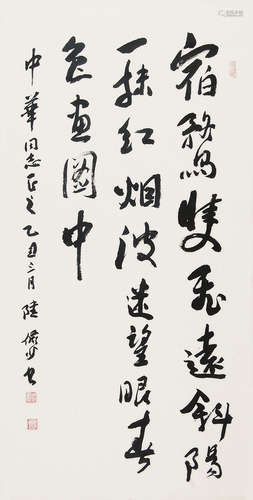 宿鷺雙飛遠斜陽
一抹紅烟波迷望眼春
色畫圖中
中華同志正之乙丑三月陸儼少書